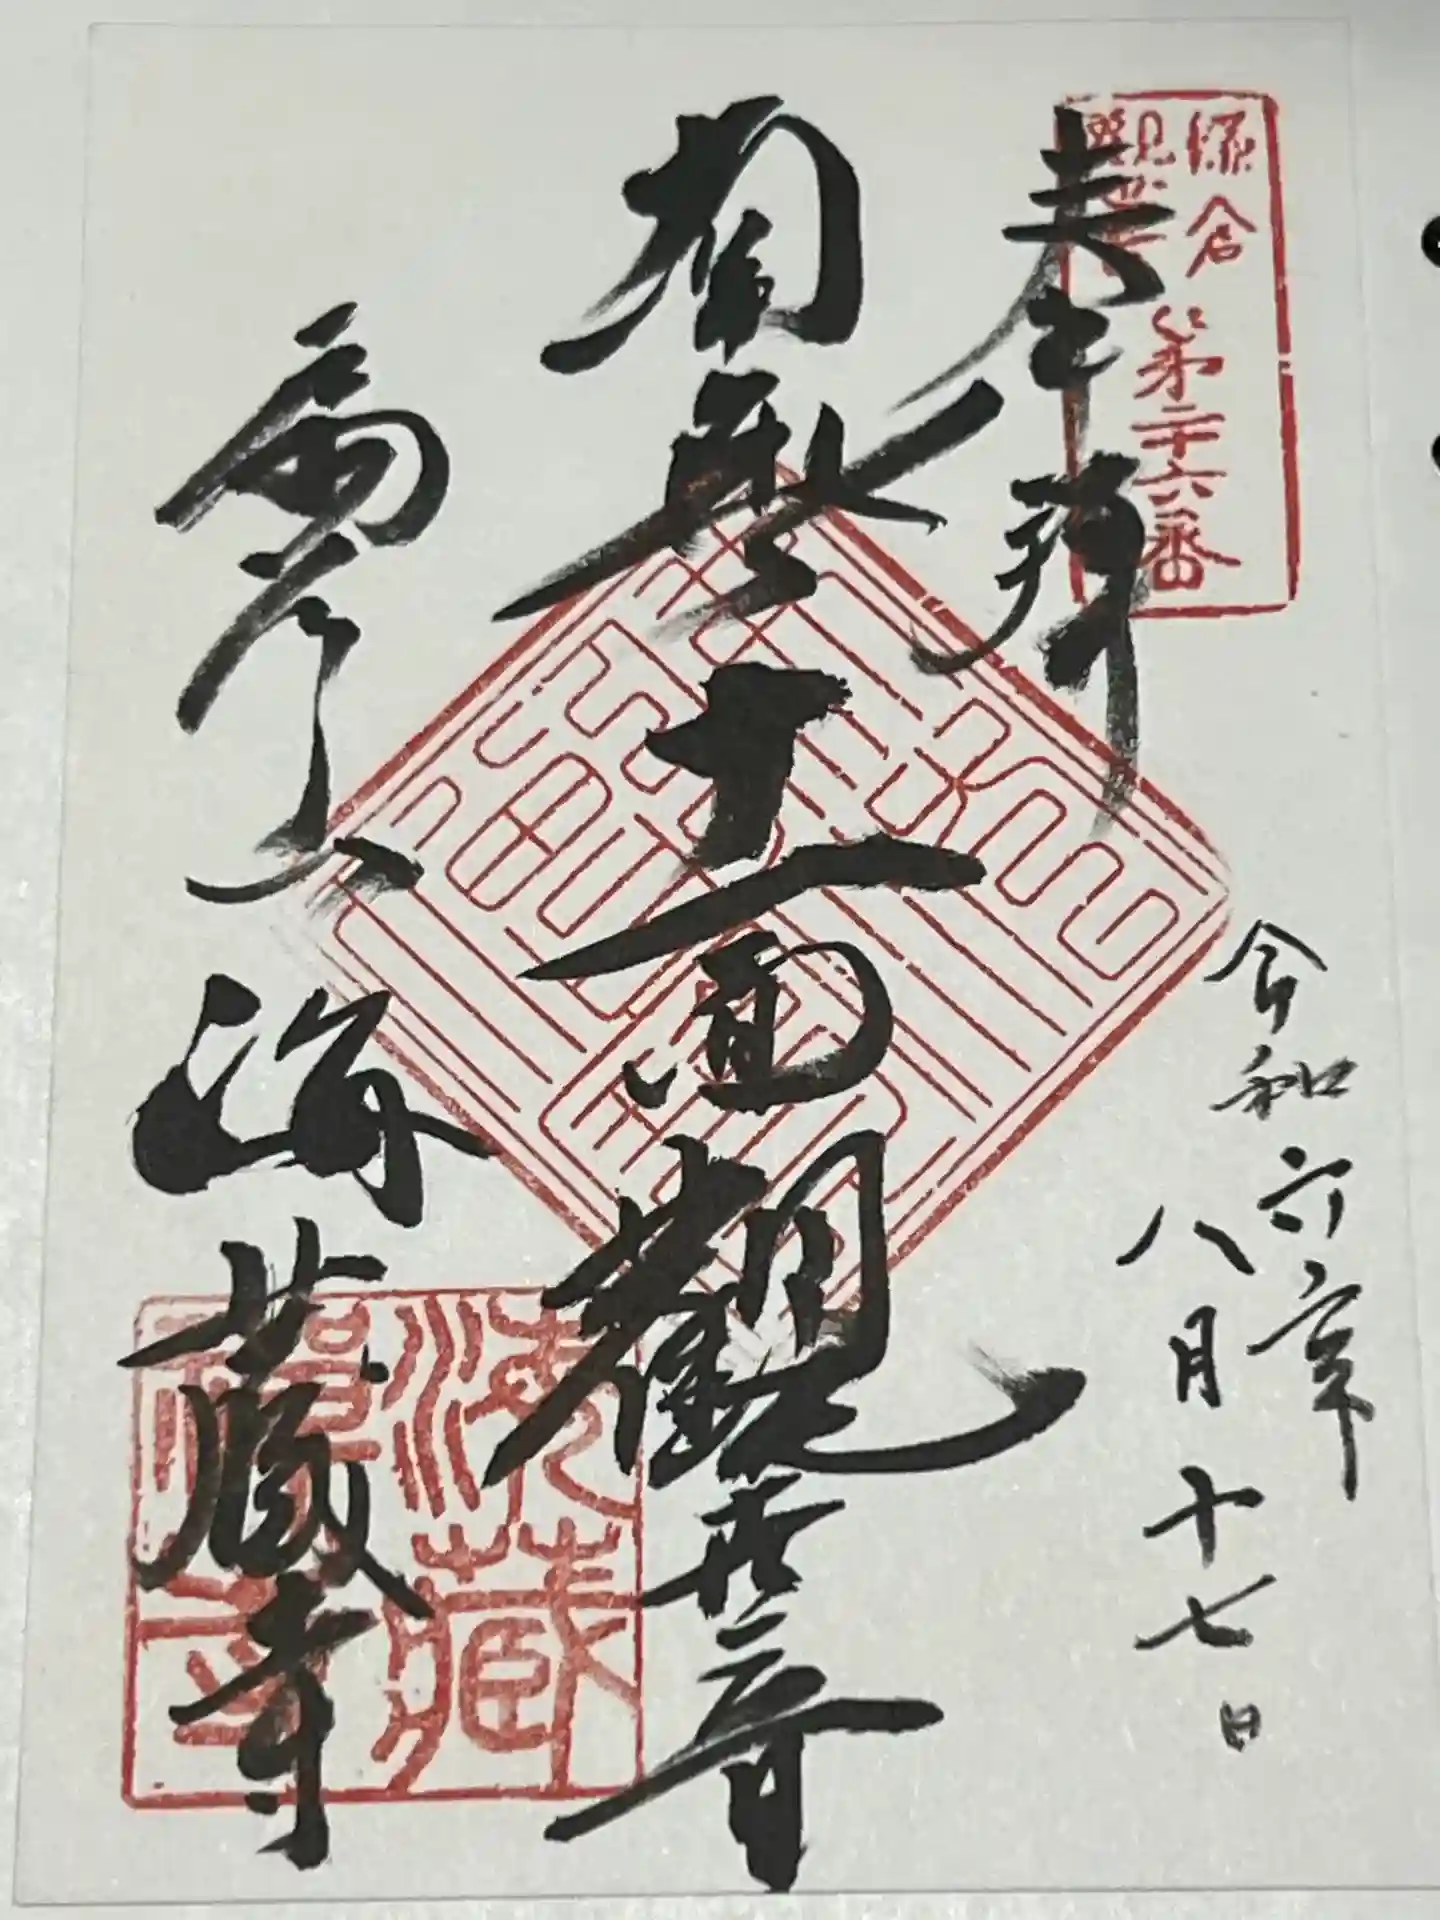 鎌倉
観世音
第二十六番
奉拝
令和六年
八月十七日
南無十一面観世音
扇谷
海蔵寺